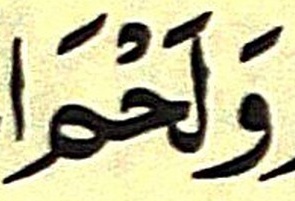 وَلَحْمَ ا